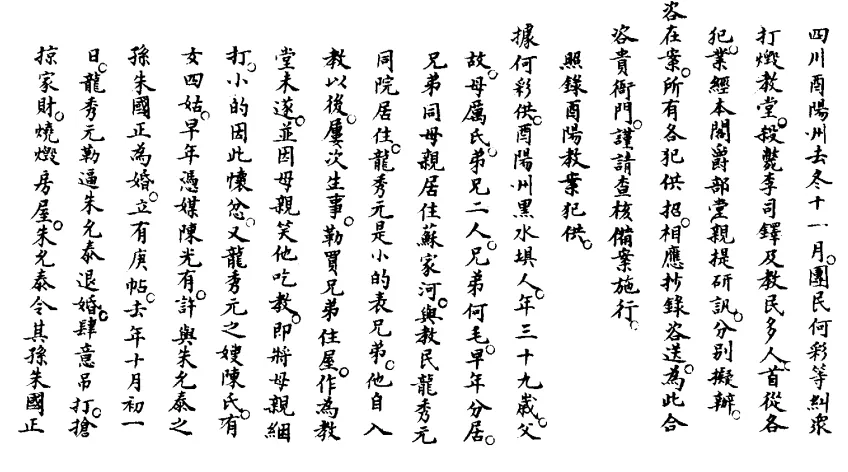 四川酉陽州去冬十一月。團民何彩等糾眾
打燬教堂。毆斃李司鐸及教民多人。首從各
犯。業經本閣爵部堂親提研訊。分別擬辦。
咨在案。所有各犯供招。相應抄錄咨送。為此合
咨貴衙門。謹請查核備案施行。
照錄酉陽教案犯供。
據何彩供。酉陽州黑水埧人。年三十九歲。父
故。母厲氏。弟兄二人。兄弟何毛。早年分居。
兄弟同母親居住蘇家河。與教民龍秀元
同院居住。龍秀元是小的表兄弟。他自入
教以後。屢次生事。勒買兄弟住屋。作為教
堂未遂。並因母親笑他吃教。即將母親綑
打。小的因此懷忿。又龍秀元之嫂陳氏。有
女四姑。早年憑媒陳光有。許與朱允泰之
孫朱國正為婚。立有庚帖。去年十月初一
日。龍秀元勒逼朱允泰退婚。肆意吊打。搶
掠家財。燒燬房屋。朱允泰令其孫朱國正